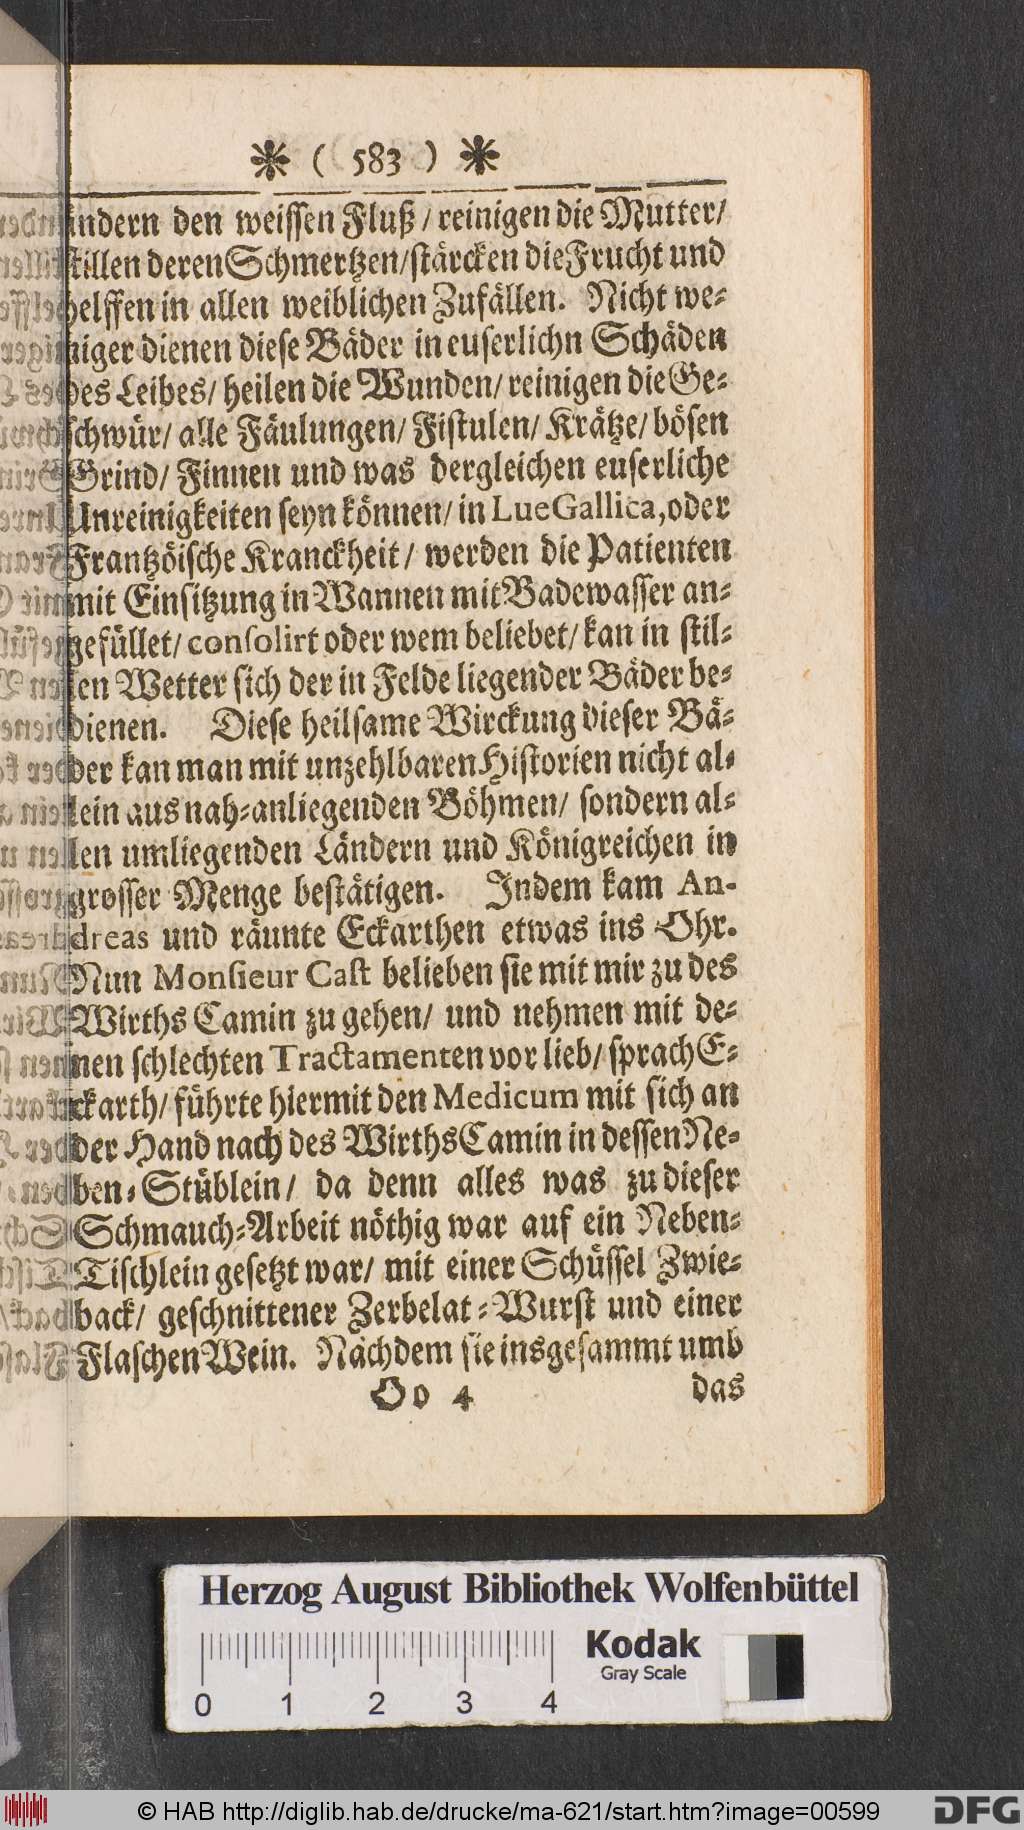 * ( 583 ) *
ändern den weissen Fluß / reinigen die Mutter/
stillen deren Schmertzen/stärcken die Frucht und
helffen in allen weiblichen Zufällen. Nicht we-
niger dienen diese Bäder in euserlichn Schäden
des Leibes/ heilen die Wunden/ reinigen die Ge-
schwür/ alle Fäulungen/ Fistulen/ Krätze/ bösen
Grind/ Finnen und was dergleichen euserliche
Unreinigkeiten seyn können/ in Lue Gallica, oder
Frantzöische Kranckheit/ werden die Patienten
mit Einsitzung in Wannen mit Badewasser an-
gefüllet/ consolirt oder wem beliebet/ kan in stil-
len Wetter sich der in Felde liegender Bäder be-
dienen. Diese heilsame Wirckung dieser Bä-
der kan man mit unzehlbaren Historien nicht al-
lein aus nah-anliegenden Böhmen/ sondern al-
len umliegenden Ländern und Königreichen in
grosser Menge bestätigen. Indem kam An-
dreas und räunte Eckarthen etwas ins Ohr.
Nun Monsieur Cast belieben sie mit mir zu des
Wirths Camin zu gehen/ und nehmen mit de-
nen schlechten Tractamenten vor lieb/ sprach E-
ckarth/ führte hiermit den Medicum mit sich an
der Hand nach des Wirths Camin in dessen Ne-
ben-Stüblein/ da denn alles was zu dieser
Schmauch-Arbeit nöthig war auf ein Neben-
Tischlein gesetzt war/ mit einer Schüssel Zwie-
back/ geschnittener Zerbelat-Wurst und einer
Flaschen Wein. Nachdem sie insgesammt umb
Oo 4 das
Herzog August Bibliothek Wolfenbüttel
Kodak
Gray Scale
0 1 2 3 4
© HAB http://diglib.hab.de/drucke/ma-621/start.htm?image=00599
DFG